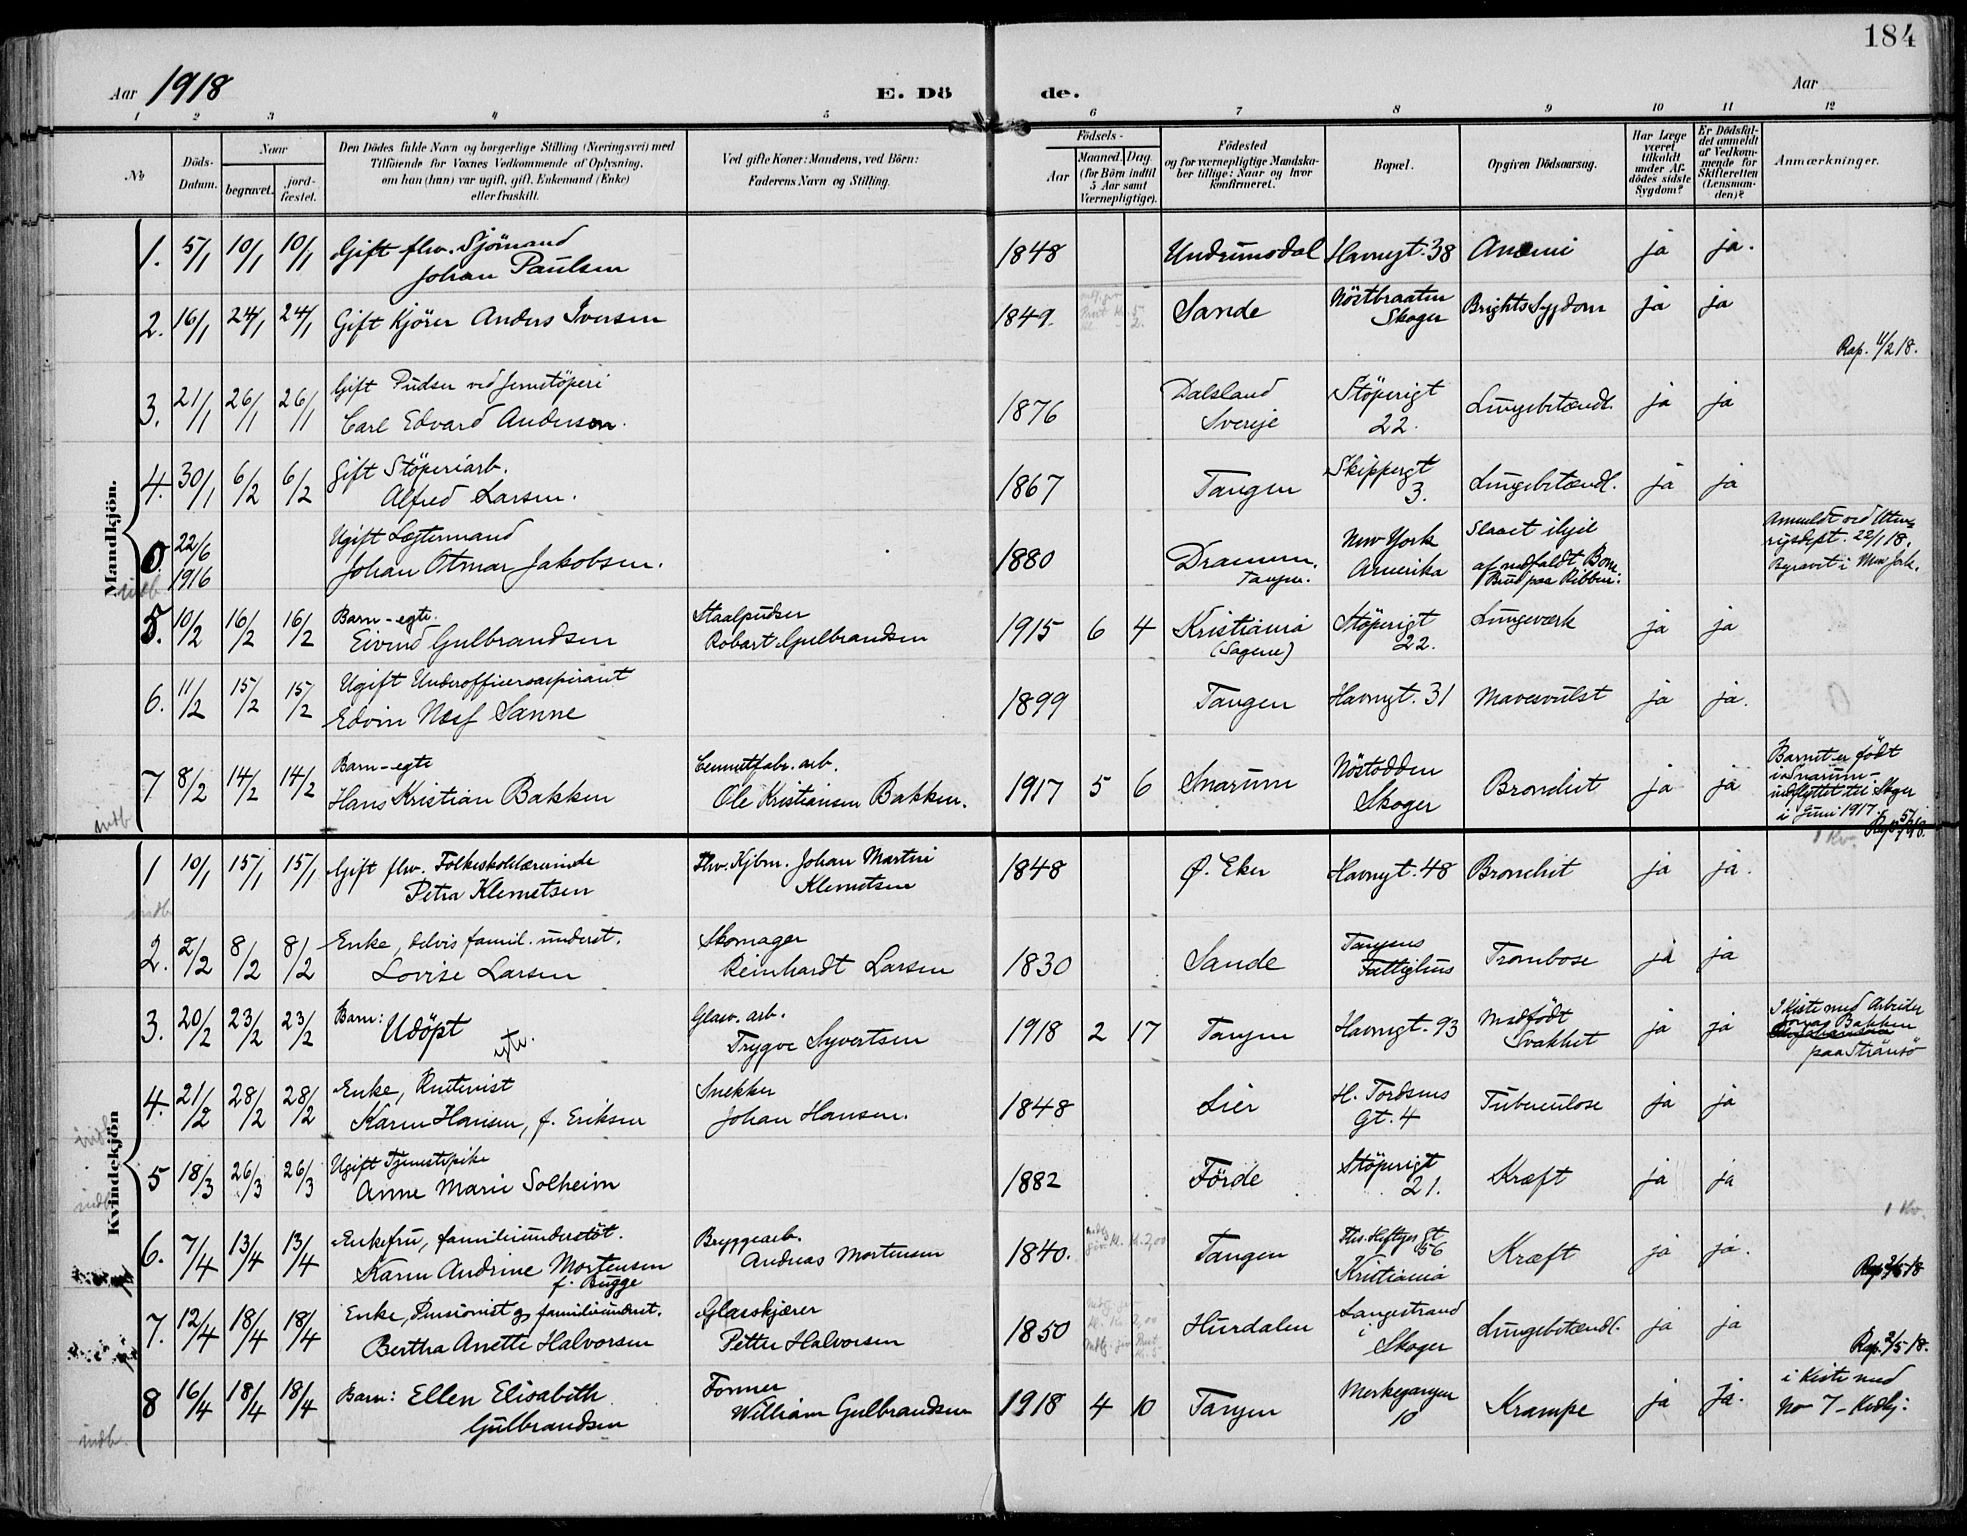 184
Aar 1918
E. Dö de.
Aar
1 2 3 4 5 6 7 8 9 10 11 12
No
Döds-
Datum.
Naar
begravet. jord-
fæstet.
Den Dödes fulde Navn og borgerlige Stilling (Næringsvei) med
Tilföiende for Voxnes Vedkommende af Oplysning,
om han (hun) var ugift, gift, Enkemand (Enke)
eller fraskilt.
Ved gifte Koner: Mandens, ved Börn:
Faderens Navn og Stilling.
Födsels-
Aar Maaned. Dag.
(for Börn indtil
5 Aar samt
Værnepligtige).
Födested
og for værnepligtige Mandska-
ber tillige: Naar og hvor
konfirmeret.
Bopæl.
Opgiven Dödsaarsag.
Har Læge
været
tilkaldt
under Af-
dödes sidste
Sygdom?
Er Dödsfal-
det anmeldt
af Vedkom-
mende for
Skifteretten
(Lensman-
den)?
Anmærkninger.
Mandkjön.
1. 5/1 10/1 10/1 Gift fhv. Sjömand
Johan Paulsen
1848 Undrumsdal Havnegt. 38 Anæmi ja ja.
2. 16/1 24/1 24/1 Gift Kjörer Anders Iversen
1849. Sande Nöstbraaten
Skoger Brights Sygdom ja ja
Rap. 11/2 18.
3. 21/1 26/1 26/1 Gift Pudser ved Jernstöperi
Carl Edvard Anderson.
1876 Dalsland
Sverije Stöperigt
22. Lungebetændl. ja ja
4. 30/1 6/2 6/2 Gift Stöperiarb.
Alfred Larsen.
1867 Tangen Skippergt
3. Lungebetændl. ja ja
0. 22/6
1916 Ugift Lægtermand
Johan Otmar Jakobsen.
1880 Drammen,
Tangen. New York
Amerika Slaaet ihjel
af nedfaldt Bom.
Brud paa Ribben.
Anmeldt ved Uten-
rigsdept. 22/1 18.
Begravet i New York.
indb
5. 10/2 16/2 16/2 Barn - egte.
Eivind Gulbrandsen
Staalpudser
Robart Gulbrandsen
1915 6 4 Kristiania
(Sagene) Stöperigt
22. Lungeværk ja ja
6. 11/2 15/2 15/2 Ugift Underofficersaspirant
Edvin Næf Sanne
1899 Tangen Havnegt. 31 Mavesvulst ja ja.
7 8/2 14/2 14/2 Barn - egte
Hans Kristian Bakken
Cementfabr. arb.
Ole Kristiansen Bakken.
1917 5 6 Snarum Nöstodden
Skoger Bronchit ja ja
Barnet er födt
i Snarum -
indflyttet til Skoger
i Juni 1917.
indb
1 Kv.
Kvindekjön
1 10/1 15/1 15/1 Gift fhv. Folkeskolelærerinde
Petra Klemetsen
Fhv. Kjbm. Johan Martin
Klemetsen
1848 Ø. Eker Havnegt. 48 Bronchit ja ja.
indb
2. 2/2 8/2 8/2 Enke, delvis famil. underst.
Lovise Larsen
Skomager
Reinhardt Larsen
1830 Sande Tangens
Fattighus Trombose ja ja
3. 20/2 23/2 23/2 Barn: Udöpt
egte.
Glasv. arb.
Trygve Syvertsen
1918 2 17 Tangen Havnegt. 93 Medfödt
Svakhet ja ja
I Kiste med Arbeider
Bakken
paa Strömsö
4. 21/2 28/2 28/2 Enke, Rutenist
Karen Hansen, f. Eriksen
Snekker
Johan Hansen.
1848 Lier H. Tordsens
Gt. 4 Tuberculose ja ja
indb
5 18/3 26/3 26/3 Ugift Tjenestepike
Anne Marie Solheim
1882 Förde Stöperigt
21. Kræft ja ja
indb
1 Kv.
6. 7/4 13/4 13/4 Enkefru, familieunderstöt.
Karen Andrine Mortensen
f. Bugge
Bryggearb.
Andreas Mortensen
1840. Tangen Ths. Heftyes Gt
56
Kristiania Kræft ja ja.
7. 12/4 18/4 18/4 Enke, Pensionist og familieunderst.
Bertha Anette Halvorsen
Glasskjærer
Petter Halvorsen
1850 Hurdalen Langestrand
i
Skoger Lungebetændl. ja ja
Rap. 2/5 18.
8 16/4 18/4 18/4 Barn: Ellen Elisabeth
Gulbrandsen
Former
William Gulbrandsen
1918 4 10 Tangen Merkegangen
10 Krampe ja ja.
i Kiste med
No 7 - Kvkj.
indb.